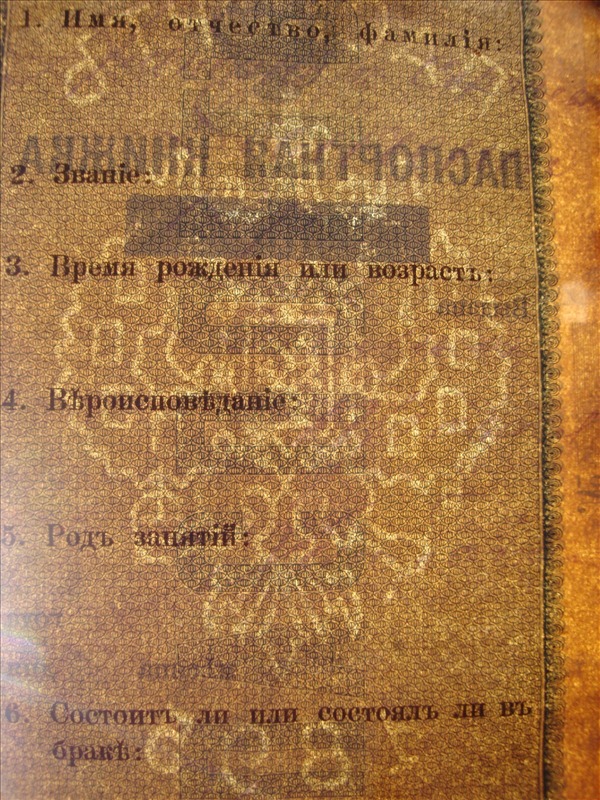 1. Имя, отчество, фамилія:
ПАСПОРТНАЯ КНИЖКА
2. Званіе:
3. Время рожденія или возрастъ:
Выдана
4. Вѣроисповѣданіе:
5. Родъ занятій:
6. Состоитъ ли или состоялъ ли въ
бракѣ: